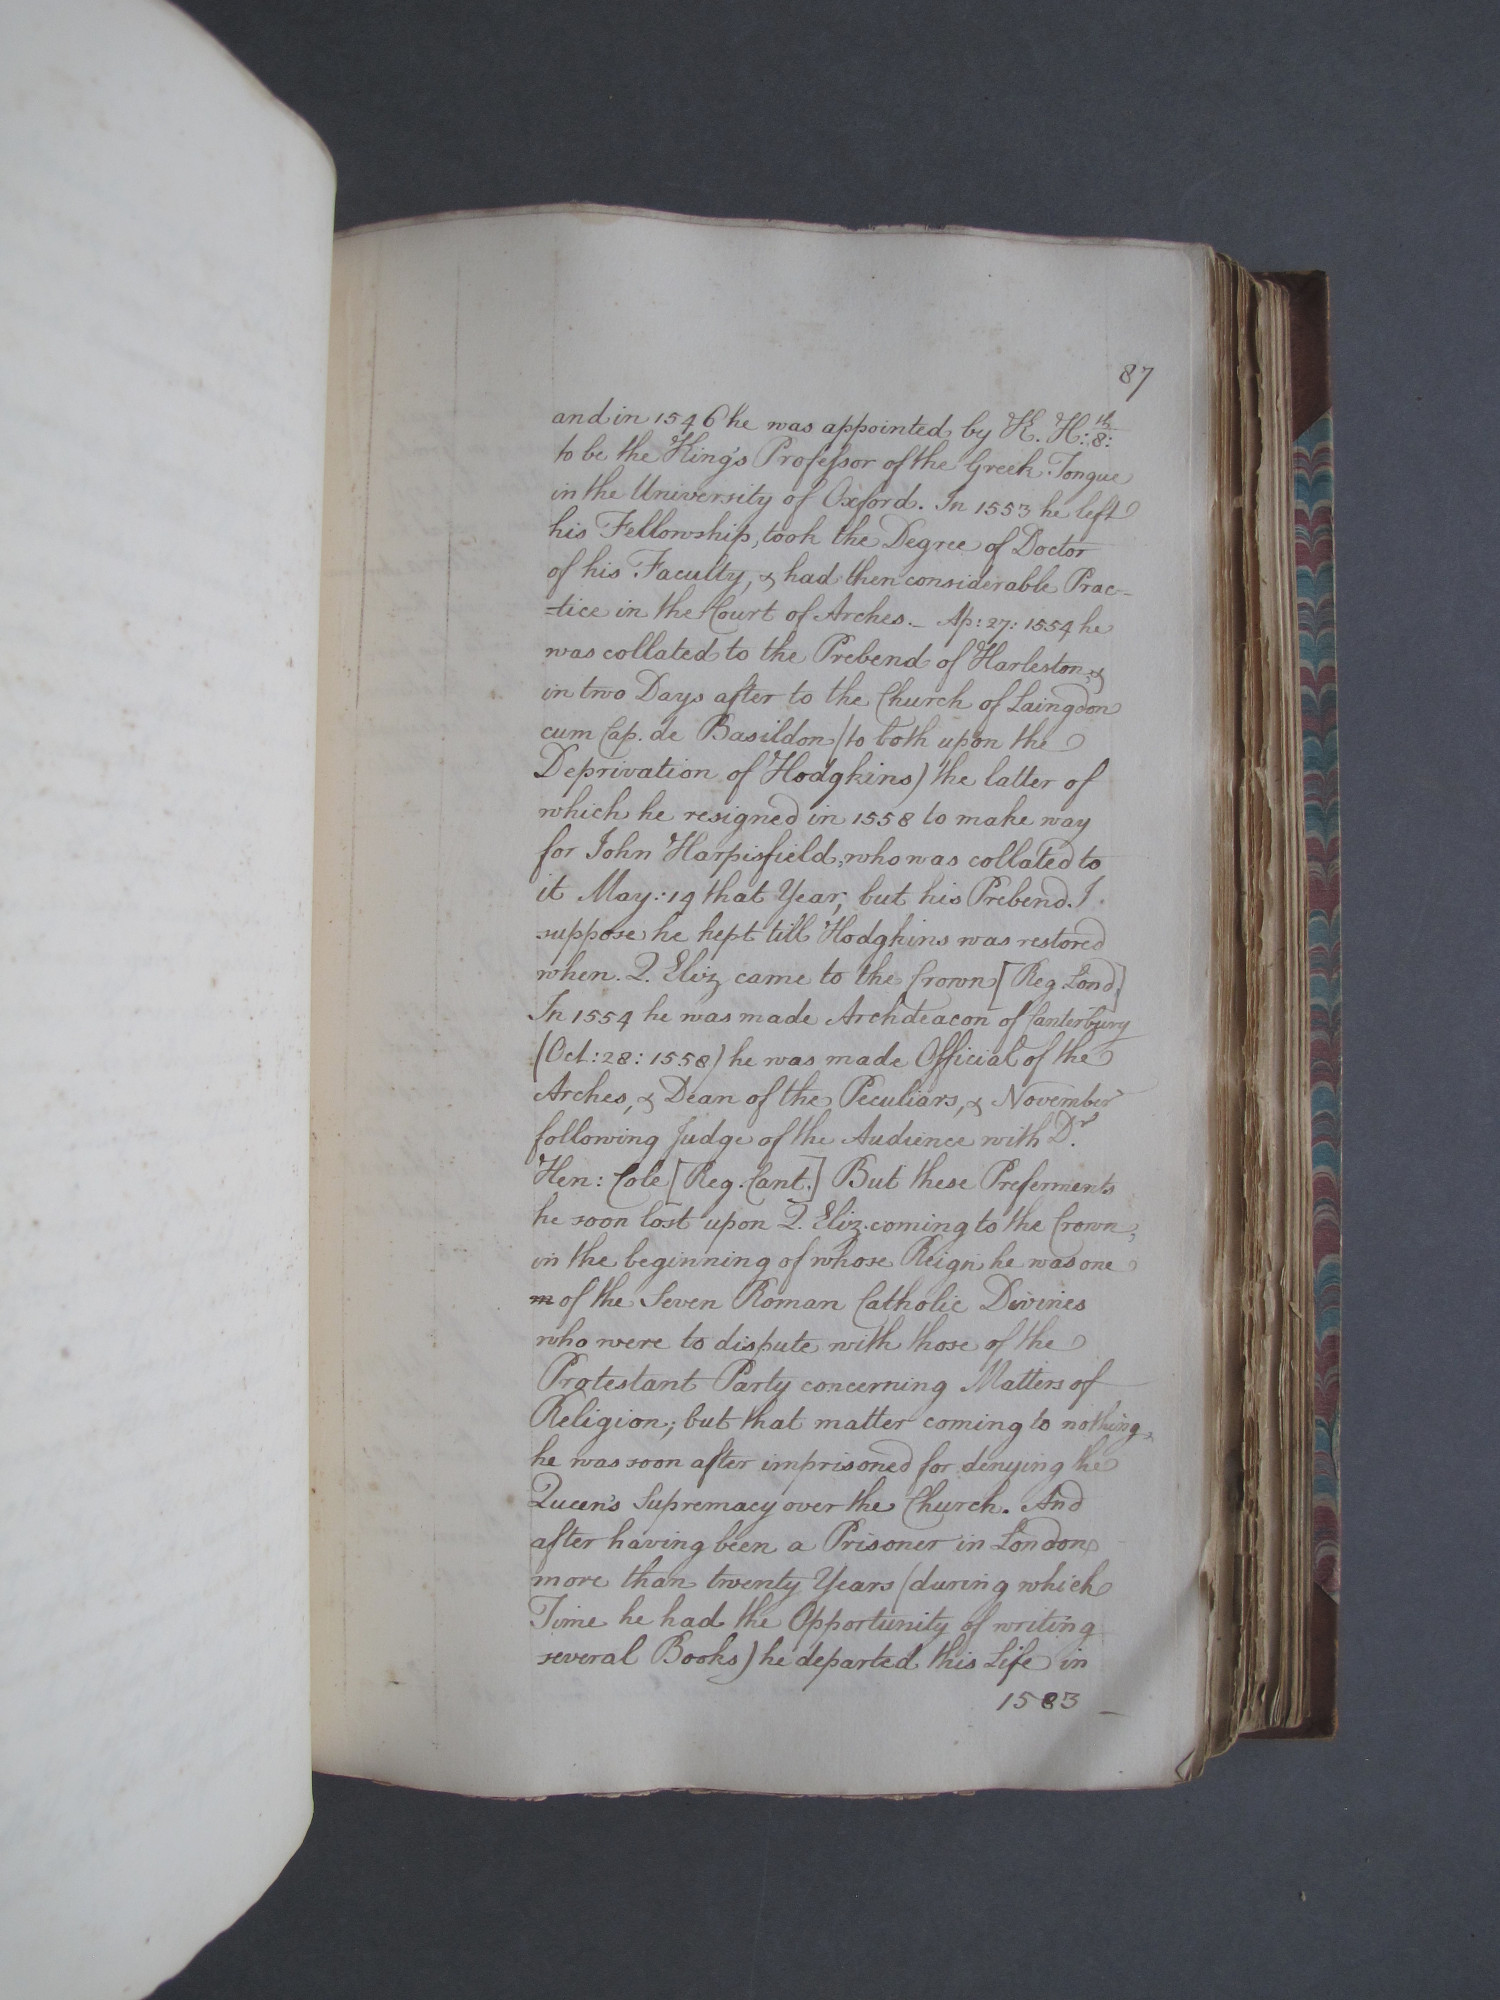 87
and in 1546 he was appointed by K. H: 8:th
to be the King's Professor of the Greek Tongue
in the University of Oxford. In 1553 he left
his Fellowship, took the Degree of Doctor
of his Faculty, & had then considerable Prac-
-tice in the Court of Arches.- Ap: 27: 1554 he
was collated to the Prebend of Harleston, &
in two Days after to the Church of Laingdon
cum Cap. de Basildon (to both upon the
Deprivation of Hodgkins) the latter of
which he resigned in 1558 to make way
for John Harpisfield, who was collated to
it May: 19 that Year, but his Prebend. I
suppose he kept till Hodgkins was restored
when. Q. Eliz came to the Crown [Reg. Lond.]
In 1554 he was made Archdeacon of Canterbury
(Oct: 28: 1558) he was made Official of the
Arches, & Dean of the Peculiars, & November
following Judge of the Audience with Dr.
Hen: Cole [Reg. Cant.] But these Preferments
he soon lost upon Q. Eliz. coming to the Crown,
in the beginning of whose Reign he was one
m of the Seven Roman Catholic Divines
who were to dispute with those of the
Protestant Party concerning Matters of
Religion; but that matter coming to nothing,
he was soon after imprisoned for denying the
Queen's Supremacy over the Church. And
after having been a Prisoner in London
more than twenty Years (during which
Time he had the Opportunity of writing
several Books) he departed this Life in
1583